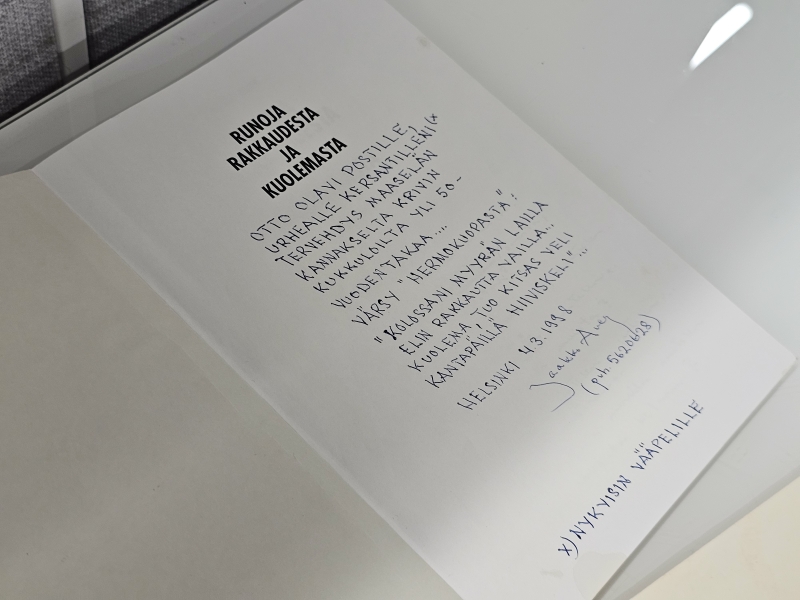 RUNOJA
RAKKAUDESTA
JA
KUOLEMASTA
OTTO OLAVI POSTILLE,
URHEALLE KERSANTILLENI(x
TERVEHDYS MAASELÄN
KANNAKSELTA KRIVIN
KUKKULOILTA YLI 50-
VUODEN TAKAA....
VÄRSY "HERMOKUOPASTA":
"KOLOSSANI MYYRÄN LAILLA
ELIN RAKKAUTTA VAILLA..
KUOLEMA, TUO KITSAS VELI
KANTAPÄILLÄ HIIVISKELI"...
HELSINKI 4.3.1998
Jaakko
(puh. 5620628)
x) NYKYISIN VÄÄPELILLE